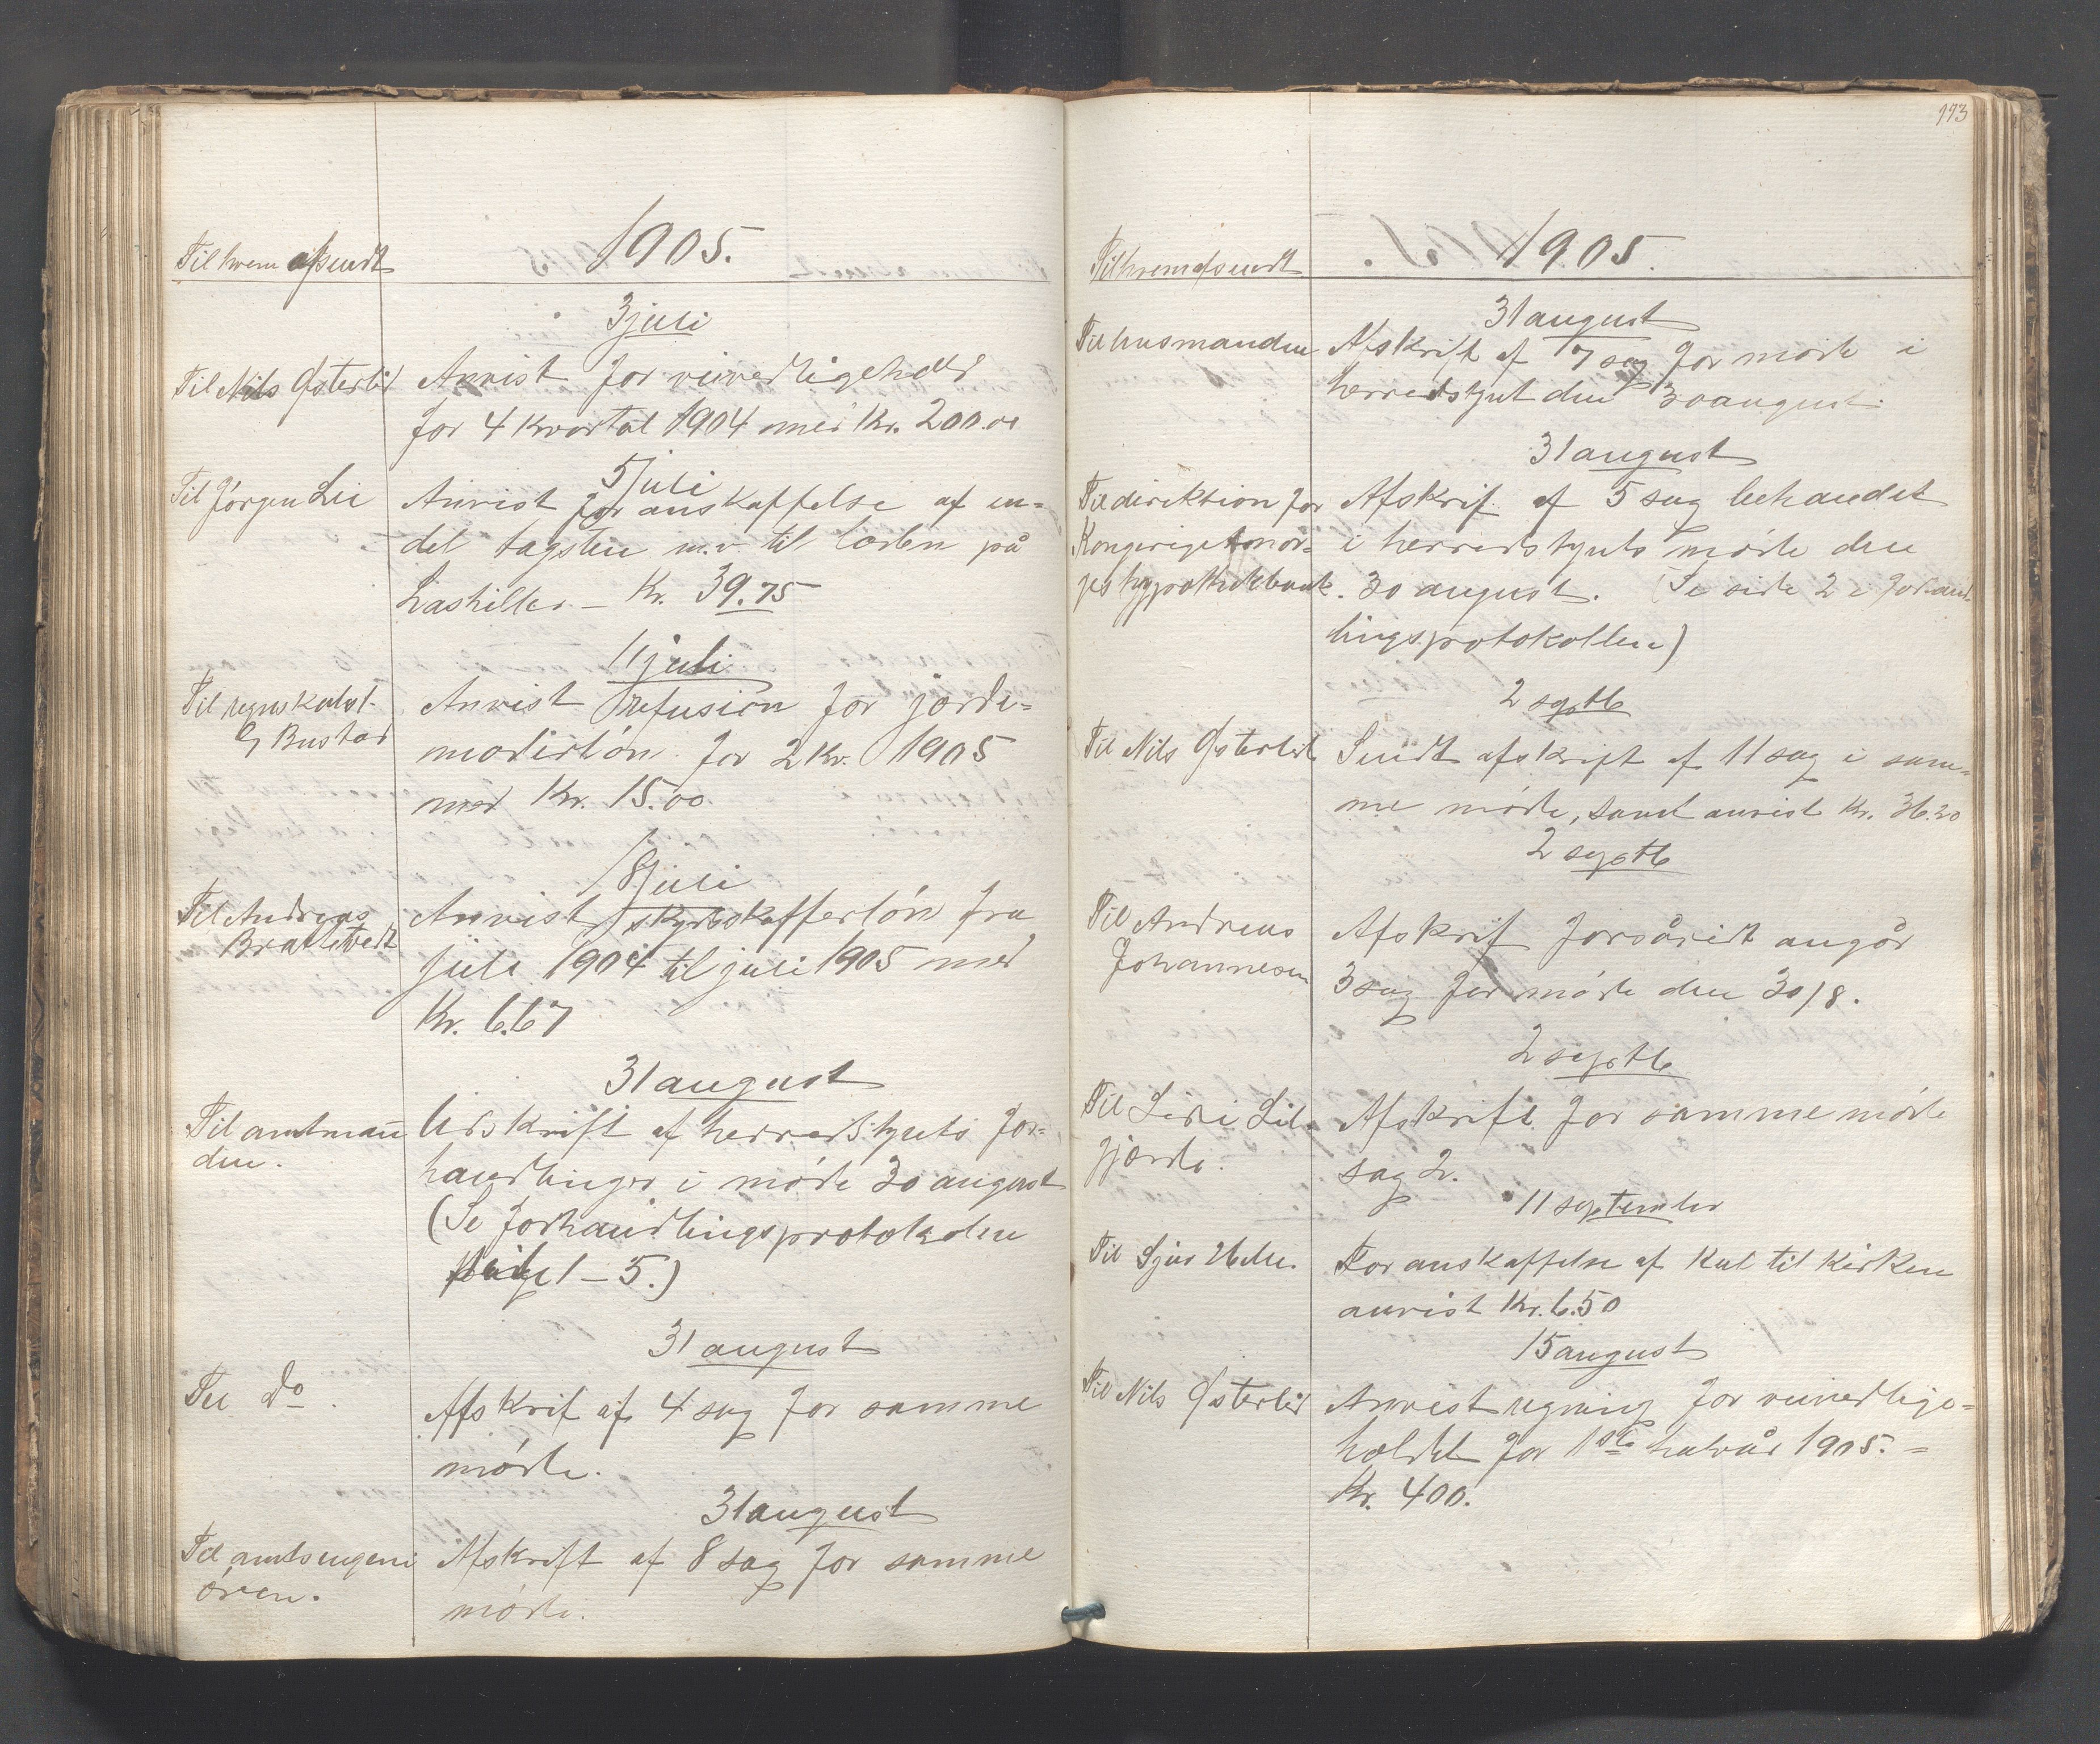 Til hvem afsendt
1905.
3 juli
Til Nils Østerlid
Anvist for veivedligehold
for 4 kvartal 1904 med Kr. 200.00
5 juli
Til Jörgen Lie
Anvist for anskaffelse af en=
del tagsten m.v. til laden på
Kr. 39.75
11 juli
Til regnskabsf.
G Bustad
Anvist refusion for jorde=
moderlön for 2 Kv. 1905
med Kr. 15.00
18 juli
Til Andreas
Brattetvedt
Anvist skydsskafferlön fra
juli 1904 til juli 1905 med
Kr. 6.67
31 august
Til amtman
den.
Udskrift af herredstyrets for=
handlinger i möde 30 august
(Se forhandlingsprotokolen
1 – 5.)
31 august
Til Do.
Afskrif af 4 sag for samme
möde.
31 august
Til amtsingeni
ören.
Afskrift af 8 sag for samme
möde.
113
Til hvem afsendt
1905.
31 august
Til husmanden
Afskrift af 7 sag for möde i
herredstyret den 30 august.
31 august
Til direktion for
Kongeriget Nor=
ges hypothekbank.
Afskrif af 5 sag behandlet
i herredstyrets möde den
30 august. (Se side 2 i forhand=
lingsprotokollen)
2 septb
Til Nils Østerlid
Sendt afskrift af 11 sag i sam=
me möde, samt anvist Kr. 36.20
2 septb
Til Andreas
Johannesen
Afskrif forsåvidt angår
3 sag for möde den 30/8.
2 septb
Til
gjærde.
Afskrift for samme möde
sag 2.
11 september
Til Sjur
For anskaffelse af kul til kirken
anvist Kr. 6.50
15 august
Til Nils Østerlid
Anvist regning for veivedlige=
holdet for 1ste halvår 1905. =
Kr. 400.